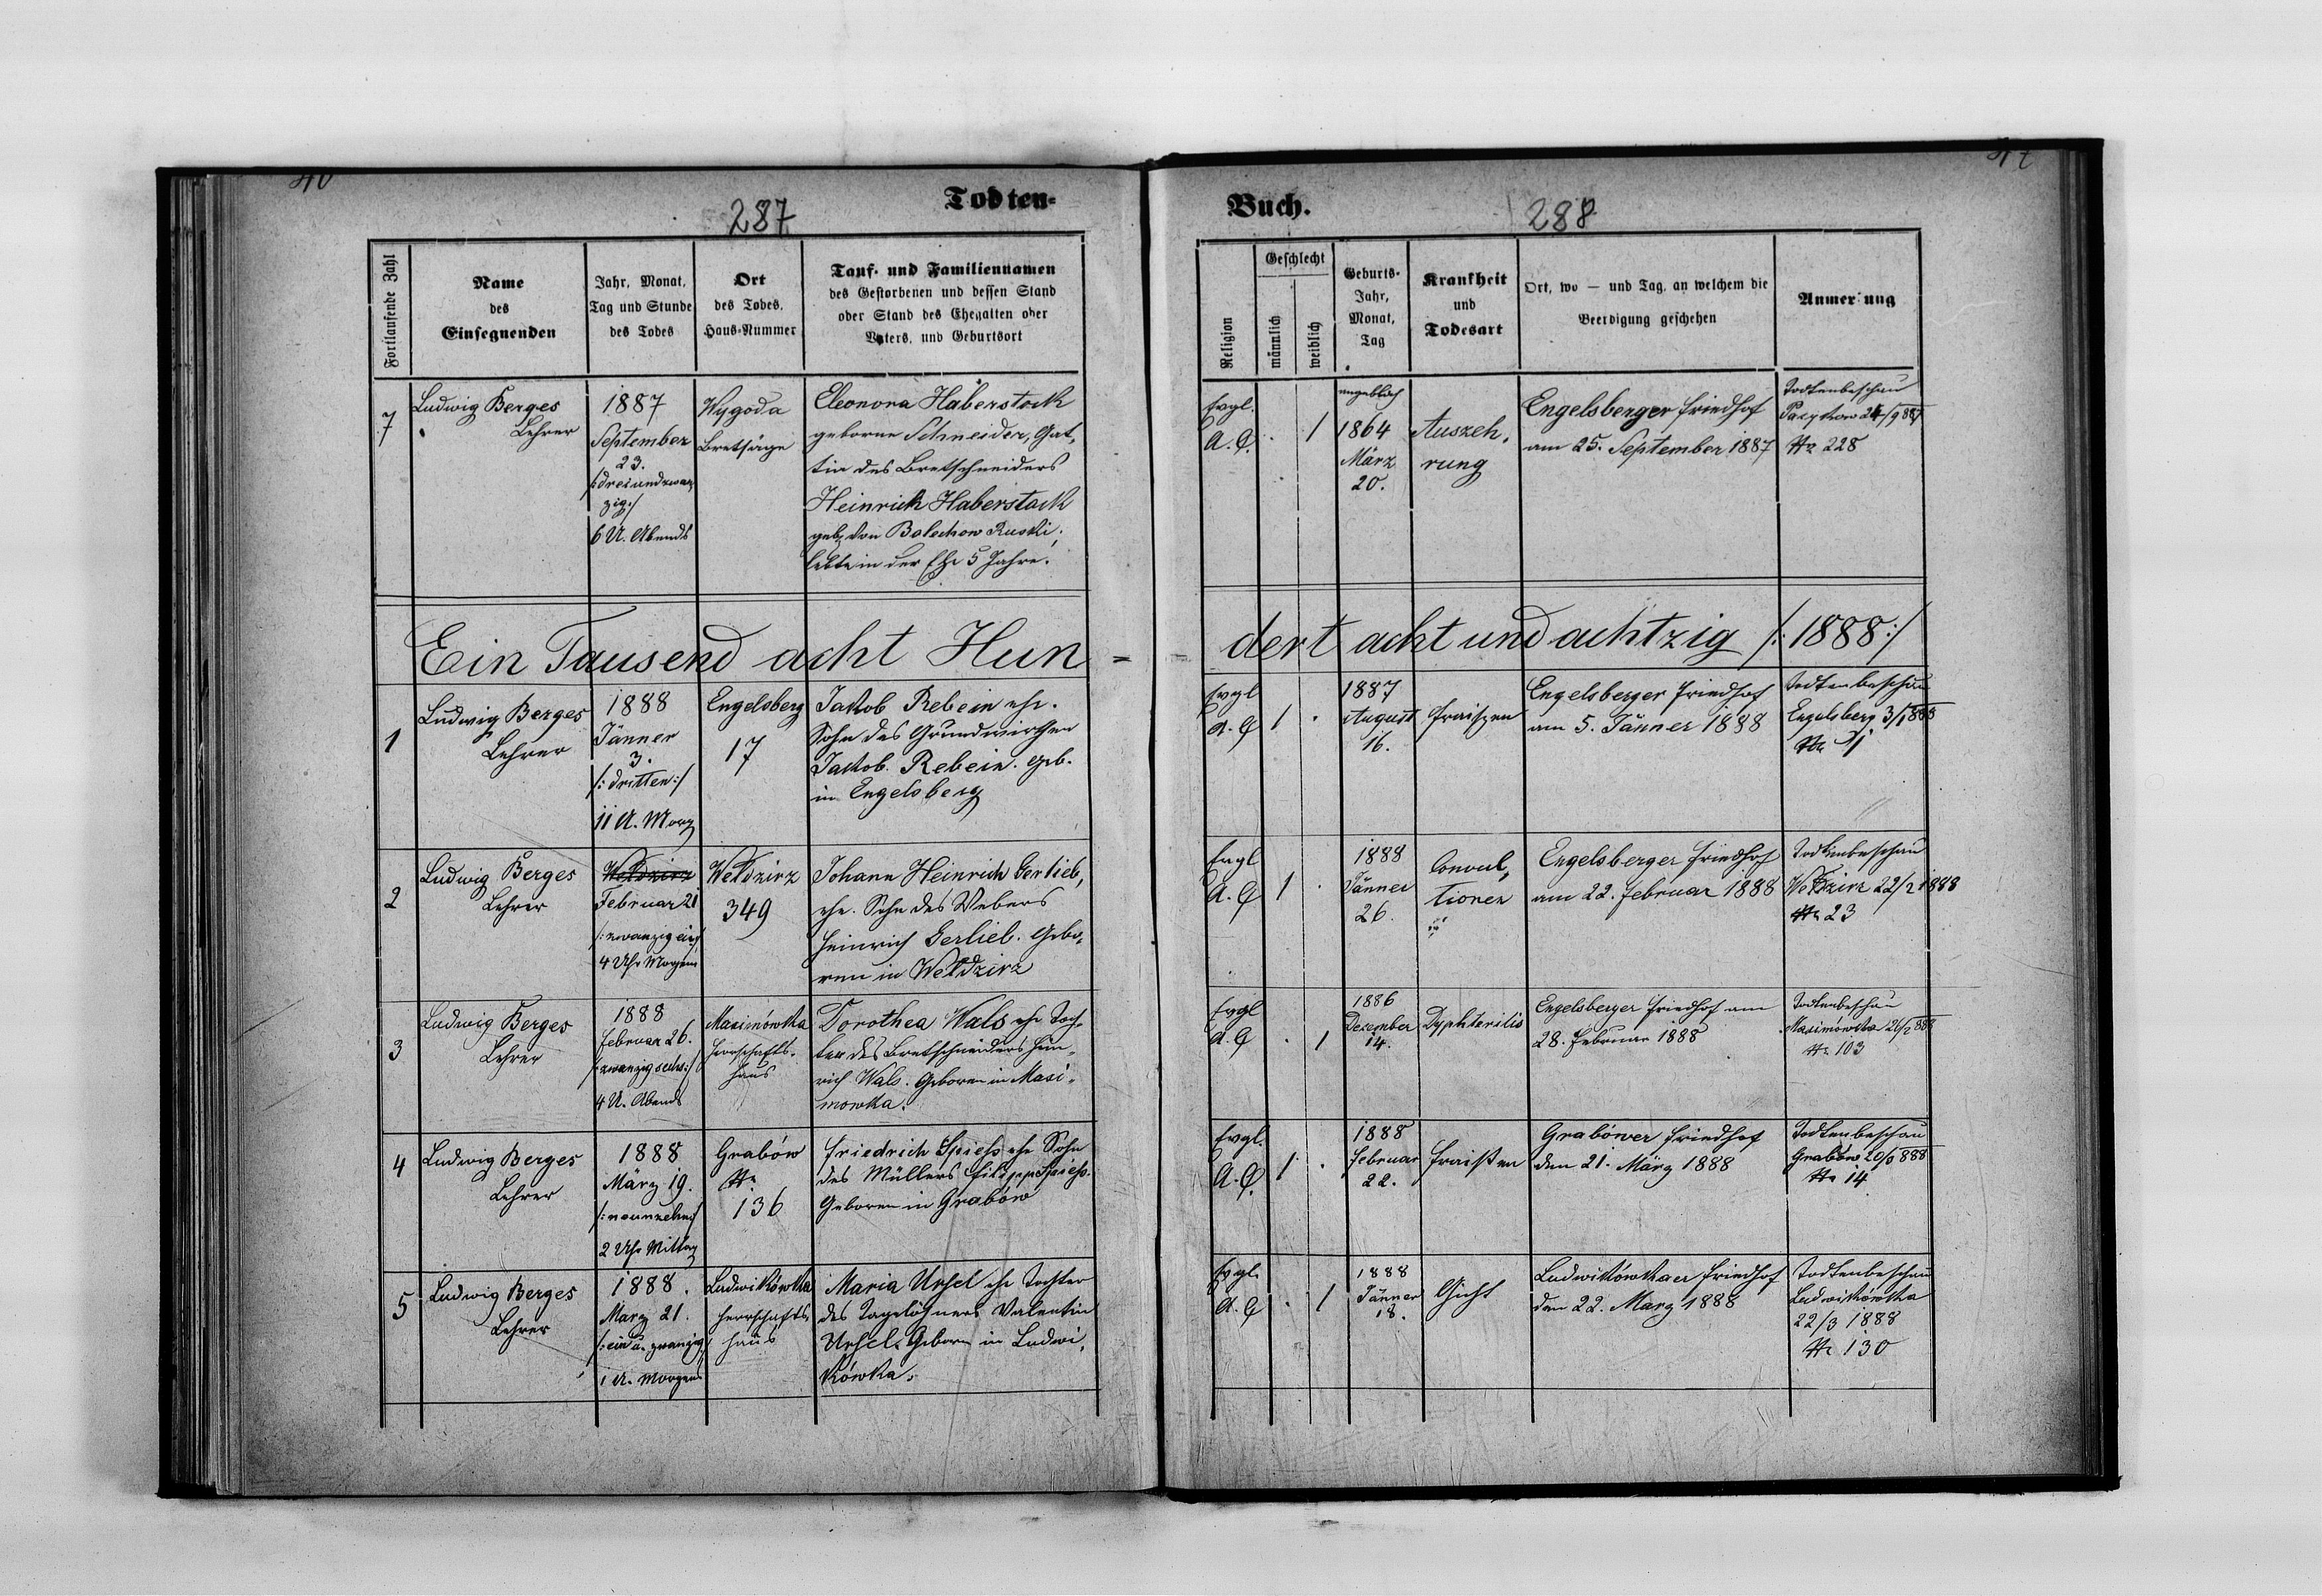 Todten-
287
Fortlaufende Zahl
Name
des
Einsegnenden
Jahr, Monat,
Tag und Stunde
des Todes
Ort
des Todes,
Haus-Nummer
Tauf- und Familiennamen
des Gestorbenen und dessen Stand
oder Stand des Ehegatten oder
Vaters, und Geburtsort
7
Ludwig Berges
Lehrer
1887
September
23.
/:dreiundzwan
zig:/
6 U. Abends
Wygoda
Bretsäge
Eleonora Haberstock
geborne Schneider, Gat,
tin des Bretschneiders
Heinrich Haberstock
geb. von Bolechow Ruski,
lebte in der Ehe 5 Jahre.
Ein Tausend acht Hun =
1
Ludwig Berges
Lehrer
1888
Jänner
3.
/: dritten:/
11 U. Morg
Engelsberg
17
Jakob Rebein ehe.
Sohn des Grundwirthen
Jakob Rebein. Geb.
in Engelsberg
2
Ludwig Berges
Lehrer
Wełdzirz
Februar 21
/:zwanzig ein/
4 Uhr Morgens
Wełdzirz
349
Johann Heinrich Gerlieb,
ehe. Sohn des Webers
Heinrich Gerlieb. Gebo,
ren in Wełdzirz
3
Ludwig Berges
Lehrer
1888
Februar 26.
/:zwanzig sechs:/
4 U. Abends
Maximówka
Herrschafts-
haus
Dorothea Wals ehe Toch,
ter des Bretschneiders Hein,
rich Wals. Geboren in Maxi,
mowka.
4
Ludwig Berges
Lehrer
1888
März 19.
/:neunzehn/
2 Uhr Mittag
Grabów
Nr
136
Friedrich Spiess ehe Sohn
des Müllers Filipp Spiess.
Geboren in Grabów
5
Ludwig Berges
Lehrer
1888.
März 21.
/:ein u. zwanzig/
1 U. Morgens
Ludwikówka
Herrschafts
haus
Maria Ursel ehe Tochter
des Tagelöhners Valentin
Ursel. Geboren in Ludwi,
kówka.
Buch.
288
Religion
Geschlecht
männlich
weiblich
Geburts-
Jahr,
Monat,
Tag
Krankheit
und
Todesart
Ort, wo — und Tag, an welchem die
Beerdigung geschehen
Anmerkung
Evgl.
A. C.
. 1
angeblich
1864
März
20.
Auszeh,
rung
Engelsberger Friedhof
am 25. September 1887
Todtenbeschau
24/9 887
Nr 228
dert acht und achtzig /: 1888:/
Evgl
A. C
1 .
1887
August
16.
Fraiszen
Engelsberger Friedhof
am 5. Jänner 1888
Todtenbeschau
Engelsberg 3/1 888
Nr 1
Evgl
A. C
1 .
1888
Jänner
26.
Convul,
tionen
Engelsberger Friedhof
am 22. Februar 1888
Todtenbeschau
Wełdzirz 22/2 1888
Nr 23
Evgl
A. C
. 1
1886
Dezember
14.
Dyphteritis
Engelsberger Friedhof am
28. Februar 1888
Todtenbeschau
Maximówka 26/2 888
Nr 103
Evgl.
A. C.
1 .
1888
Februar
22.
Fraißen
Grabówer Friedhof
den 21. März 1888
Todtenbeschau
Grabów 20/3 888
Nr 14
Evgl.
A. C
. 1
1888
Jänner
18.
Gicht
Ludwikówkaer Friedhof
den 22. März 1888
Todtenbeschau
Ludwikówka
22/3 1888
Nr 130